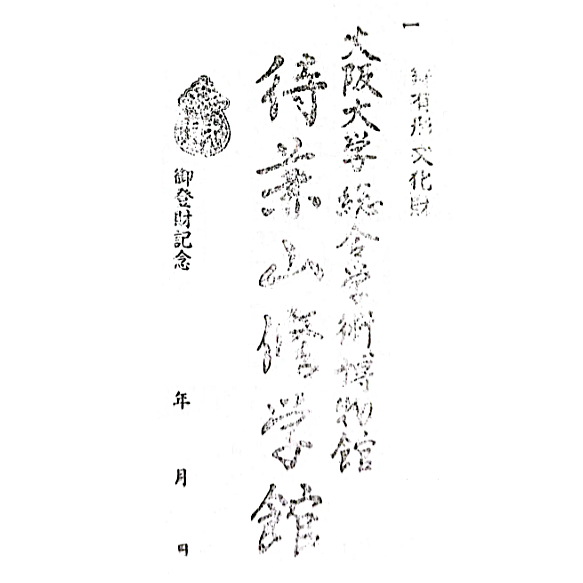 一
有形文化財
大阪大学総合学術博物館
待兼山修学館
御登財記念
年 月 日